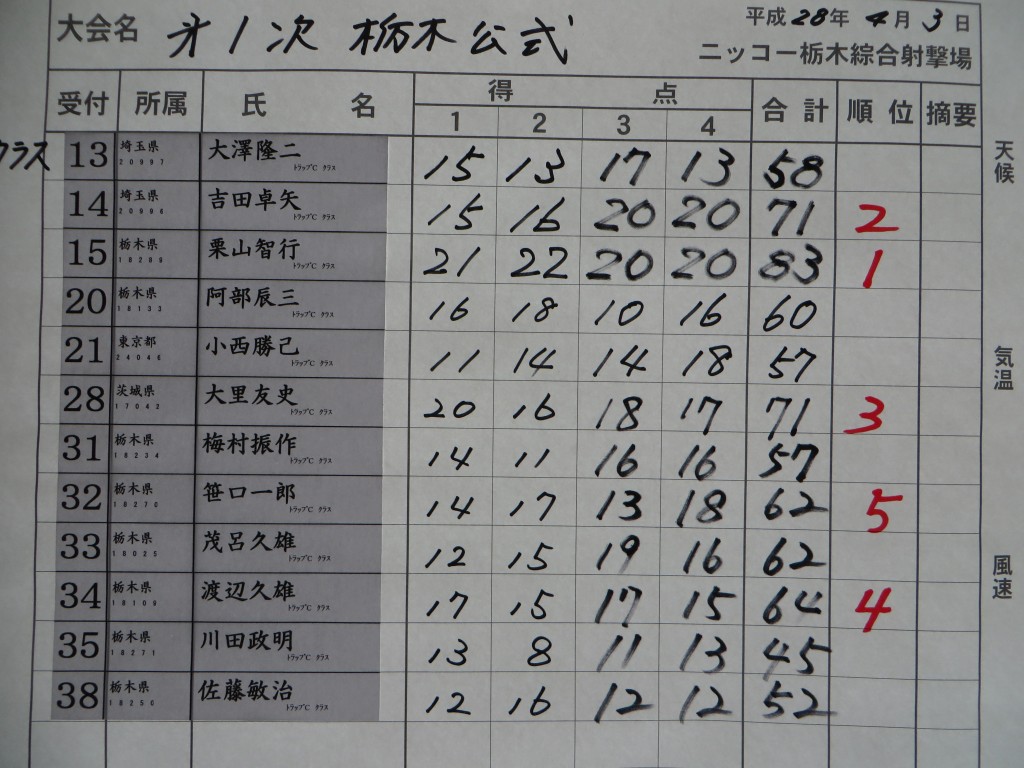 大会名 才1次 栃木公式
平成28年 4月 3日
ニッコー栃木綜合射撃場
受付 所属 氏 名 得 点 合計 順位 摘要
1 2 3 4
クラス 13 埼玉県 20997 大澤隆二 トラップC クラス 15 13 17 13 58
14 埼玉県 20996 吉田卓矢 トラップC クラス 15 16 20 20 71 2
15 栃木県 18289 栗山智行 トラップC クラス 21 22 20 20 83 1
20 栃木県 18133 阿部辰三 トラップC クラス 16 18 10 16 60
21 東京都 24046 小西勝己 トラップC クラス 11 14 14 18 57
28 茨城県 17042 大里友史 トラップC クラス 20 16 18 17 71 3
31 栃木県 18234 梅村振作 トラップC クラス 14 11 16 16 57
32 栃木県 18270 笹口一郎 トラップC クラス 14 17 13 18 62 5
33 栃木県 18025 茂呂久雄 トラップC クラス 12 15 19 16 62
34 栃木県 18109 渡辺久雄 トラップC クラス 17 15 17 15 64 4
35 栃木県 18271 川田政明 トラップC クラス 13 8 11 13 45
38 栃木県 18250 佐藤敏治 トラップC クラス 12 16 12 12 52
天候
気温
風速